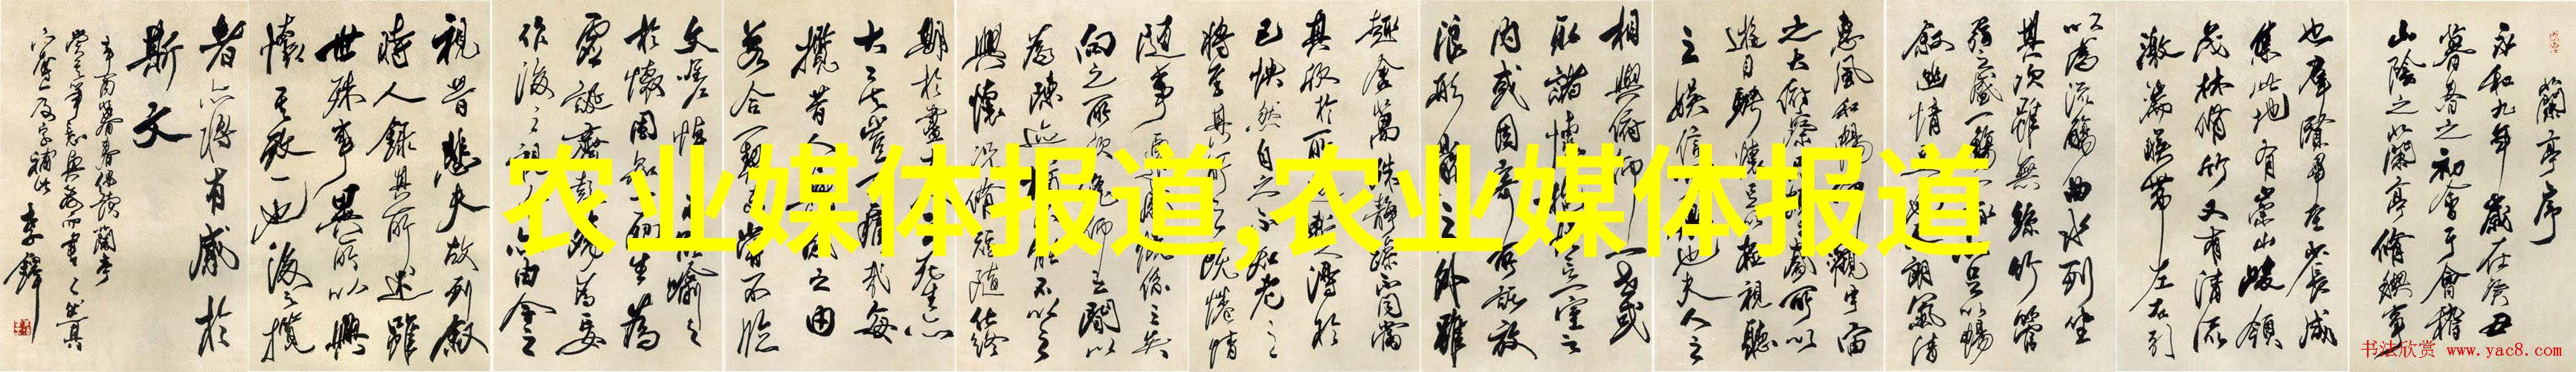 蘭亭序
永和九年歲在癸丑
暮春之初會于會稽
山陰之蘭亭修禊事
也羣賢畢至少長咸
集此地有崇山峻領
茂林修竹又有清流
激湍映帶左右引
以為流觴曲水列坐
其次雖無絲竹管
弦之盛一觴一詠亦足以暢
敘幽情是日也天朗氣清
惠風和暢仰觀宇宙
之大俯察品類之盛所以
遊目騁懷足以極視聽
之娛信可樂也夫人之
相與俯仰一世或
取諸懷抱悟言一室之
內或因寄所託放
浪形骸之外雖
趣舍萬殊靜躁不同當
其欣於所遇暫得於
己快然自足不知老之
將至及其所之既惓情
隨事遷感慨係之矣
向之所欣俛仰之間以
為陳迹猶不能不以之
興懷況修短隨化終
期於盡古人云死生亦
大矣豈不痛哉每
攬昔人興感之由
若合一契未嘗不臨
文嗟悼不能喻之
於懷固知一死生為
虛誕齊彭殤為妄
作後之視今亦由今之
視昔悲夫故列敘
時人錄其所述雖
世殊事異所以興
懷其致一也後之攬
者亦將有感於
斯文
辛酉暮春偶讀蘭亭
李鐸
农业媒体报道,农业媒体报道
书法欣赏 www.yac8.com